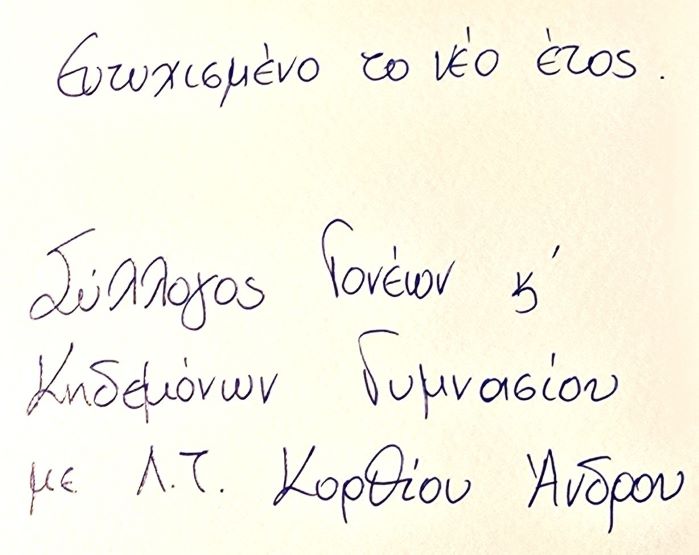 Ευτυχισμένο το νέο έτος.
Σύλλογος Γονέων κ'
Κηδεμόνων Γυμνασίου
με Λ.Τ. Κορθίου Άνδρου